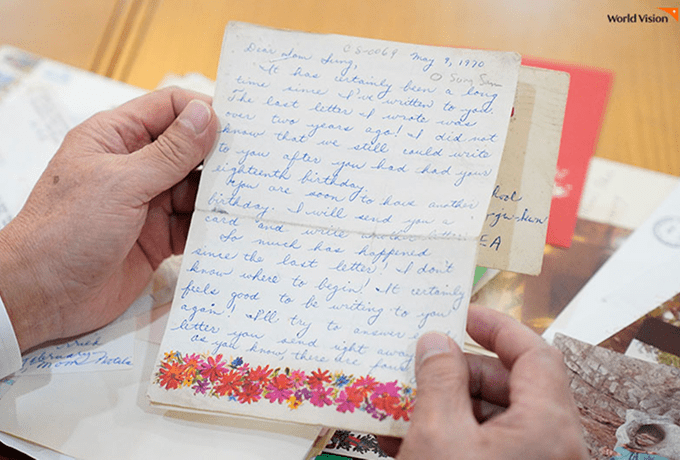 World Vision
CS-0069 May 9, 1970
Dear
It has certainly been a long
time since I've written to you.
The last letter I wrote was
over two years ago! I did not
know that we still could write
to you after you had had your
eighteenth birthday.
You are soon to have another
birthday. I will send you a
card and write another letter.
So much has happened
since the last letter! I don't
know where to begin! It certainly
feels good to be writing to you
again! I'll try to answer
letter you send right away
As you know, there are four
EA
Mom